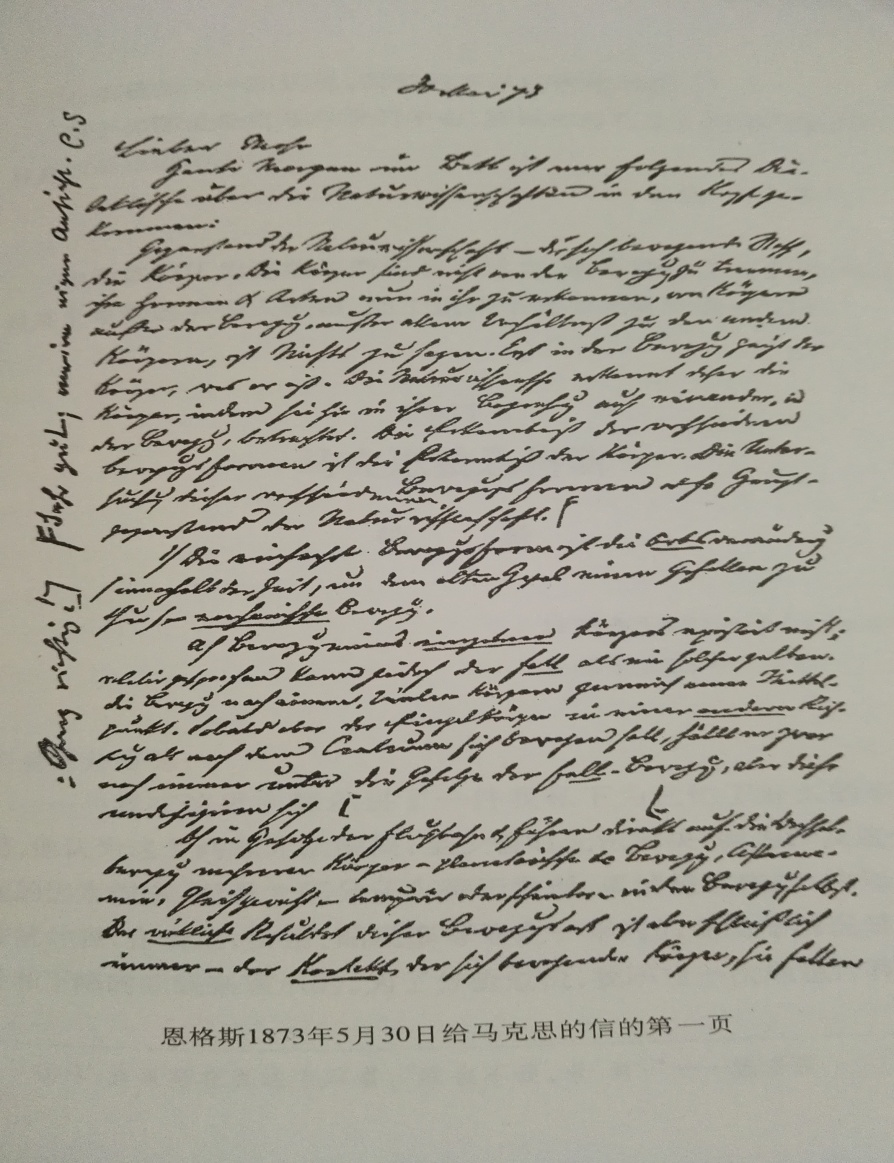 30 Mai 73
Lieber Mohr
Heute Morgen im Bett ist mir folgendes Dia-
lektische über die Naturwissenschaften in den Kopf ge-
kommen:
Gegenstand der Naturwissenschaft – der sich bewegende Stoff,
die Körper. Die Körper sind nicht von der Bewegg zu trennen,
ihre Formen & Arten nur in ihr zu erkennen, von Körpern
außer der Bewegg, außer allem Verhältniß zu den andern
Körpern, ist Nichts zu sagen. Erst in der Bewegg zeigt der
Körper, was er ist. Die Naturwissenschft erkennt daher die
Körper, indem sie sie in ihrer Beziehg auf einander, in
der Bewegg, betrachtet. Die Erkenntniß der verschiedenen
Bewegungsformen ist die Erkenntniß der Körper. Die Unter-
suchg dieser verschiednen Bewegungsformen also Haupt-
gegenstand der Naturwissenschaft.
1) Die einfachste Bewegungsform ist die Ortsverändrg
(innerhalb der Zeit, um dem alten Hegel einen Gefallen zu
thun) – mechanische Bewegg.
a) Bewegg eines einzelnen Körpers existirt nicht;
relativ gesprochen kann jedoch der Fall als ein solcher gelten.
die Bewegg nach einem, vielen Körpern gemeinsamen Mittel-
punkt. Sobald aber der Einzelkörper in einer andern Rich-
tg als nach dem Centrum sich bewegen soll, fällt er zwar
noch immer unter die Gesetze der Fall-Bewegg, aber diese
modifiziren sich
b) in Gesetze der Flugbahn & führen direkt auf die Wechsel-
bewegg mehrerer Körper – planetarische &c Bewegg, Astrono-
mie, Gleichgewicht – temporär oder scheinbar in der Bewegg selbst.
Das wirkliche Resultat dieser Bewegungsart ist aber schließlich
immer – der Kontakt der sich bewegenden Körper, sie fallen
Sehr gut; meine eigne Ansicht. C.S
Ganz richtig!
恩格斯1873年5月30日给马克思的信的第一页